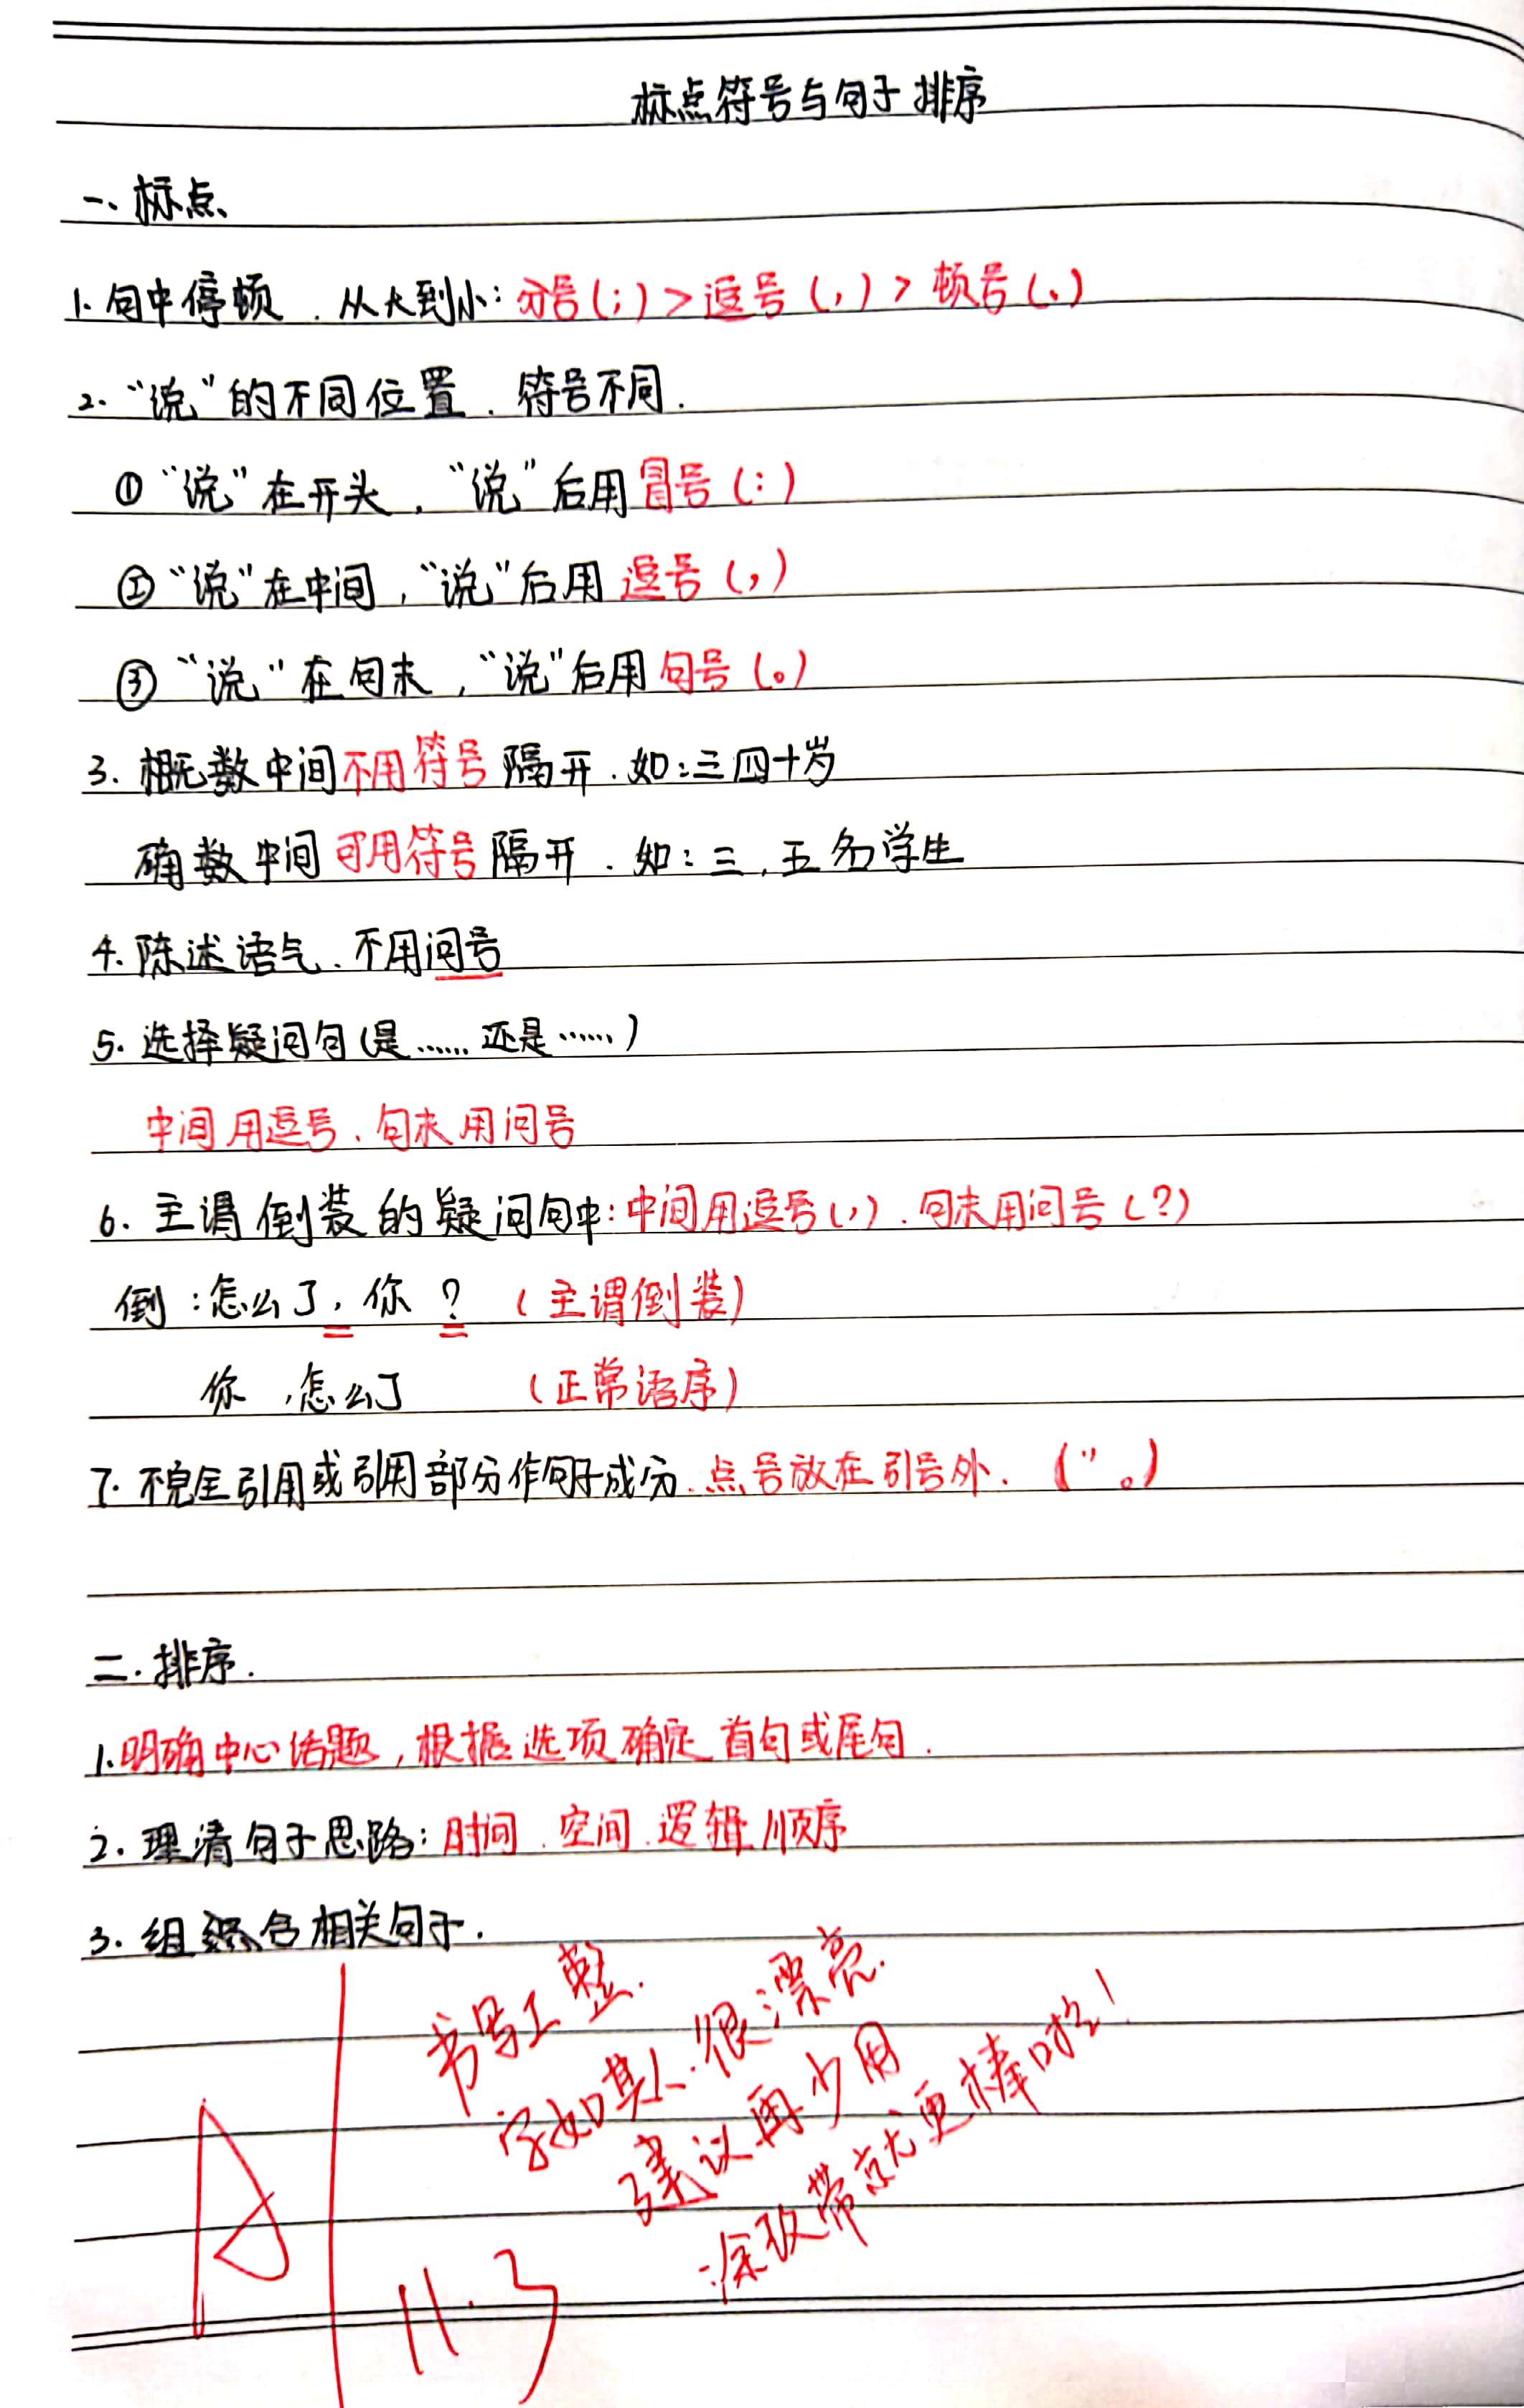 标点符号与句子排序
一、标点
1. 句中停顿、从大到小：分号（；）＞逗号（，）＞顿号（、）
2. “说”的不同位置、符号不同.
①“说”在开头，“说”后用冒号（：）
②“说”在中间，“说”后用逗号（，）
③“说”在句末，“说”后用句号（。）
3. 概数中间不用符号隔开、如：三四十岁
确数中间可用符号隔开、如：三、五名学生
4. 陈述语气、不用问号
5. 选择疑问句（是……还是……）
中间用逗号、句末用问号
6. 主谓倒装的疑问句中：中间用逗号（，）、句末用问号（？）
倒：怎么了，你？（主谓倒装）
你，怎么了（正常语序）
7. 不完全引用或引用部分作句子成分、点号放在引号外.（”。）
二、排序.
1. 明确中心话题，根据选项确定首句或尾句.
2. 理清句子思路：时间、空间、逻辑顺序
3. 组合相关句子.
书写工整.
字如其人.很漂亮.
建议再少用
涂改带就更棒啦！
A
11.3